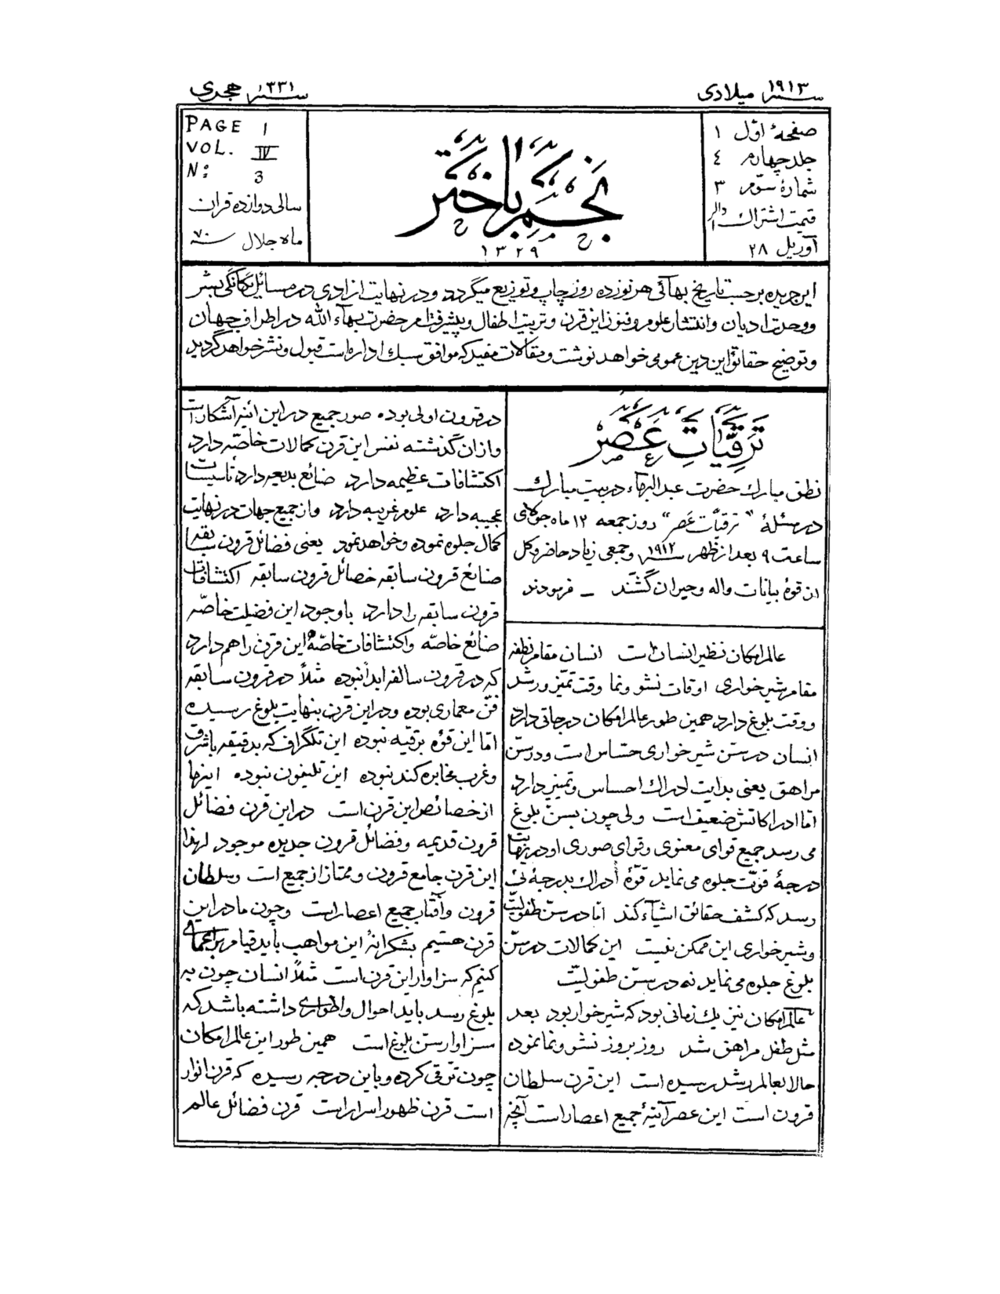 سنه ۱۹۱۳ میلادی
سنه ۱۳۳۱ هجری
صفحهٔ اوّل ۱
جلد چهارم ٤
شمارهٔ سوّم ۳
قیمت اشتراک ۱ دالر
آوریل ۲۸
نجم باختر
۱۳۲۹
PAGE 1
VOL. IV
Nº 3
سالی دوازده قران
ماه جلال سنه ۷۰
این جریده بر حسب تاریخ بهآئی هر نوزده روز چاپ و توزیع میگردد و در نهایت ازادی در مسائل یگانگی بشر
و وحدت ادیان و انتشار علوم و فنون این قرن و تربیت اطفال و پیشرفت امر حضرت بهآء الله در اطراف جهان
و توضیح حقائق این دین عمومی خواهد نوشت و مقالات مفید که موافق سبک اداره است قبول و نشر خواهد گردید
ترقّیات عصر
نطق مبارک حضرت عبد البهآء در بیت مبارک
در مسئلهٔ "ترقیّات عصر" روز جمعه ۱۲ ماه جولای
ساعت ۹ بعد از ظهر سنه ۱۹۱۲ و جمعی زیاد حاضر و کل
از قوهٔ بیانات واله و حیران گشتند – فرمودند
عالم امکان نظیر انسان است انسان مقام نطفه
مقام شیر خواری اوقات نشو و نما وقت تمیز و رشد
و وقت بلوغ دارد همین طور عالم امکان درجاتی دارد
انسان در سن شیر خواری حسّاس است و در سنّ
مراهق یعنی بدایت ادراک احساس و تمیز دارد
امّا ادراکاتش ضعیف است ولی چون بسن بلوغ
می رسد جمیع قوای معنوی و قوای صوری او در نهایت
درجهٔ قوّت جلوه می نماید قوهٔ ادراک بدرجه ئی
رسد که کشف حقائق اشیآء کند امّا در سن طفولیّت
و شیر خواری این ممکن نیست این کمالات در سنّ
بلوغ جلوه می نماید نه در سن طفولیّت
عالم امکان نیز یک زمانی بود که شیر خوار بود بعد
مثل طفل مراهق شد روز بروز نشو و نما نموده
حالا بعالم رشد رسیده است این قرن سلطان
قرون است این عصر آئینهٔ جمیع اعصار است آنچه
در قرون اولی بوده صور جمیع در این ائنه آشکار است
و از ان گذشته نفس این قرن کمالات خاصّه دارد
اکتشافات عظیمه دارد صنائع بدیعه دارد تأسیسات
عجیبه دارد علوم غریبه دارد و از جمیع جهات در نهایت
کمال جلوه نموده و خواهد نمود یعنی فضائل قرون سابقه
صنائع قرون سابقه خصائل قرون سابقه اکتشافات
قرون سابقه را دارد با وجود این فضیلت خاصّه
صنائع خاصّه و اکتشافات خاصّهٔ این قرن را هم دارد
که در قرون سالفه ابداً نبوده مثلاً در قرون سابقه
فنّ معماری بوده و در این قرن بنهایت بلوغ رسیده
امّا این قوهٔ برقیّه نبوده این تلگراف که بدقیقه با شرق
و غرب مخابره کند نبوده این تلیفون نبوده اینها
از خصائص این قرن است در این قرن فضائل
قرون قدیمه و فضائل قرون جدیده موجود لهذا
این قرن جامع قرون و ممتاز از جمیع است و سلطان
قرون و آفتاب جمیع اعصار است و چون ما در این
قرن هستیم بشکرانهٔ این مواهب باید قیام بر اعمالی
کنیم که سزاوار این قرن است مثلاً انسان چون به
بلوغ رسد باید احوال و اطواری داشته باشد که
سزاوار سن بلوغ است همین طور این عالم امکان
چون ترقی کرده و باین درجه رسیده که قرن انوار
است قرن ظهور اسرار است قرن فضائل عالم